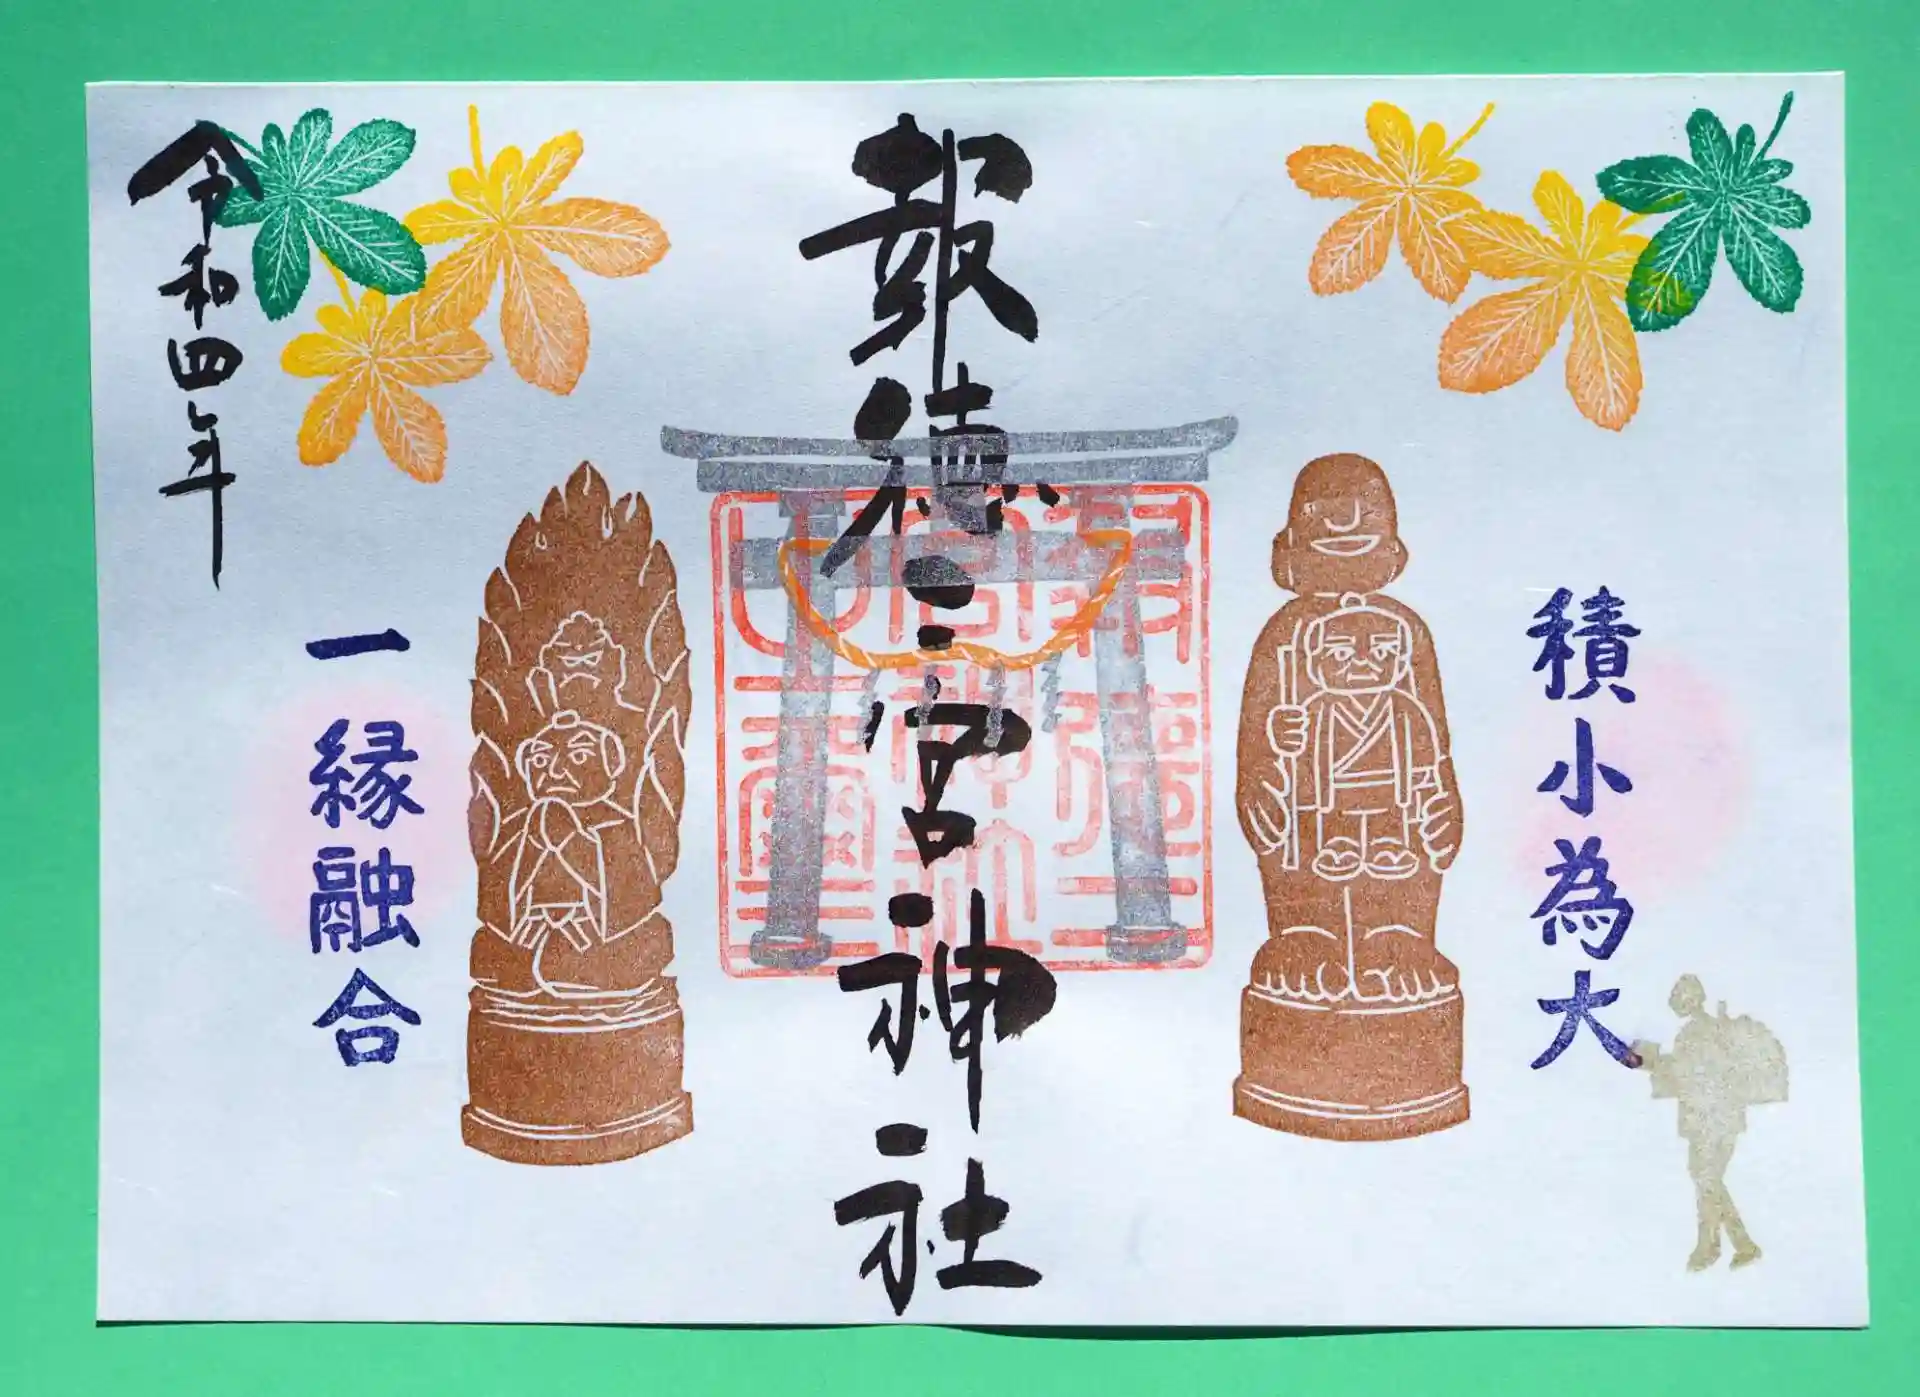 積小為大
報徳二宮神社
一縁融合
令和四年